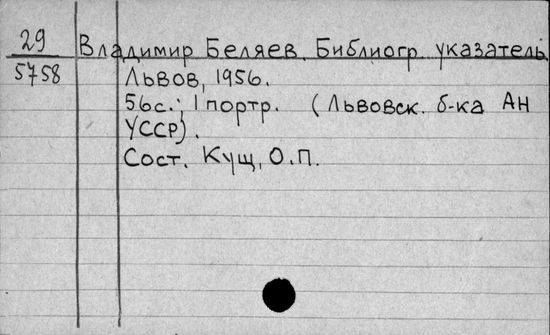 29
5758
Владимир Беляев. Библиогр. указатель
Львов, 1956.
56с.; 1 портр. (Львовск. б-ка АН
УССР).
Сост. Кущ, О.П.